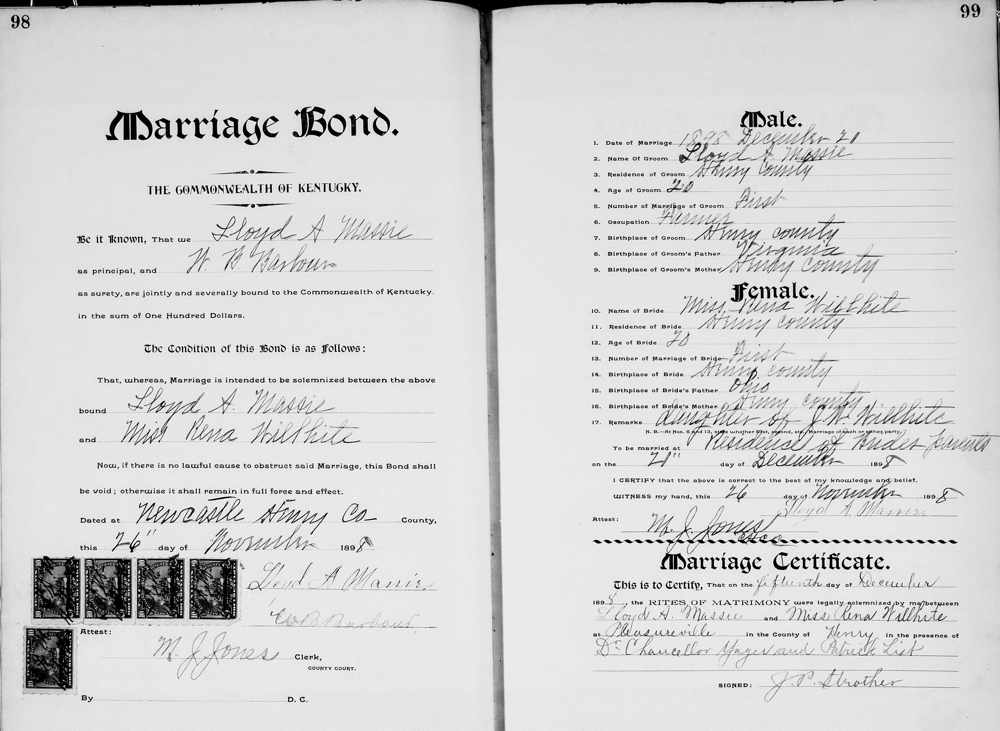 98
Marriage Bond.
THE COMMONWEALTH OF KENTUCKY.
Be it Known, That we Lloyd A Massie
as principal, and W. B Barbour
as surety, are jointly and severally bound to the Commonwealth of Kentucky.
in the sum of One Hundred Dollars.
The Condition of this Bond is as Follows:
That, whereas, Marriage is intended to be solemnized between the above
bound Lloyd A. Massie
and Miss Rena Wilhite
Now, if there is no lawful cause to obstruct said Marriage, this Bond shall
be void; otherwise it shall remain in full force and effect.
Dated at Newcastle Henry Co County,
this 26" day of November 1898
Lloyd A. Massie
W B Barbour.
Attest:
M. J. Jones Clerk,
COUNTY COURT.
By D. C.
99
Male.
1. Date of Marriage 1898 December 20
2. Name Of Groom Lloyd A Massie
3. Residence of Groom Henry County
4. Age of Groom 20
5. Number of Marriage of Groom First
6. Occupation Farmer
7. Birthplace of Groom Henry County
8. Birthplace of Groom's Father Virginia
9. Birthplace of Groom's Mother Henry County
Female.
10. Name of Bride Miss Rena Wilhite
11. Residence of Bride Henry County
12. Age of Bride 20
13. Number of Marriage of Bride First
14. Birthplace of Bride Henry County
15. Birthplace of Bride's Father Ohio
16. Birthplace of Bride's Mother Henry County
17. Remarks daughter of J. W. Wilhite
N. B.—At Nos. 5 and 13, state whether first, second, etc., Marriage of each or either party.
To be married at Residence of Brides parents
on the day of December 1898
I CERTIFY that the above is correct to the best of my knowledge and belief.
WITNESS my hand, this 26 day of November 1898
Lloyd A. Massie
Attest: M. J. Jones
Marriage Certificate.
This is to Certify, That on the fifteenth day of December
1898, the RITES OF MATRIMONY were legally solemnized by me between
Lloyd A. Massie and Miss Rena Wilhite
at Pleasureville in the County of Henry in the presence of
Dr Chancellor Yager and Patrick List
SIGNED: J. P. Strother